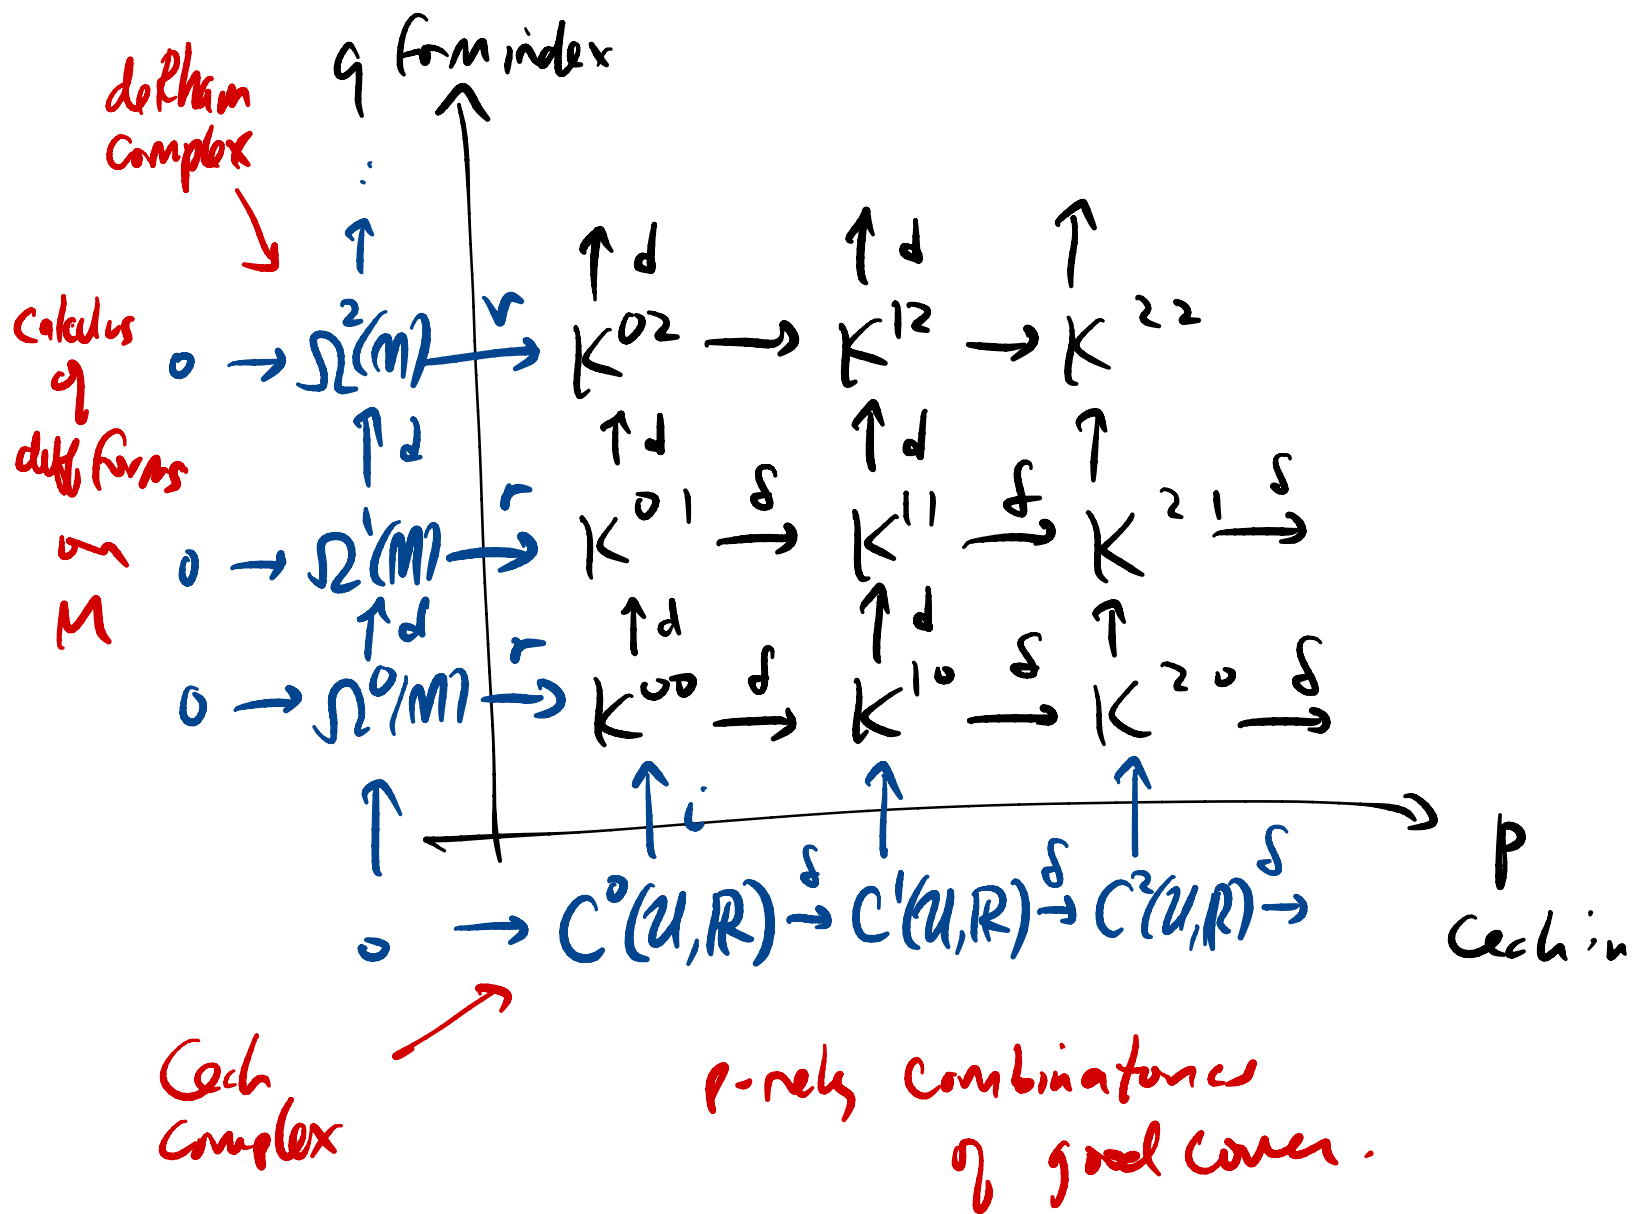 q form index
deRham
complex
d d
Calculus
of
diff forms
on
M
0 → Ω²(M) r → K⁰² → K¹² → K²²
d d d
0 → Ω¹(M) r → K⁰¹ δ → K¹¹ δ → K²¹ δ →
d d d
0 → Ω⁰(M) r → K⁰⁰ δ → K¹⁰ δ → K²⁰ δ →
i
p
0 → C⁰(U,ℝ) δ → C¹(U,ℝ) δ → C²(U,ℝ) δ →
Cech in
Cech
complex
combinatorics
of good cover.